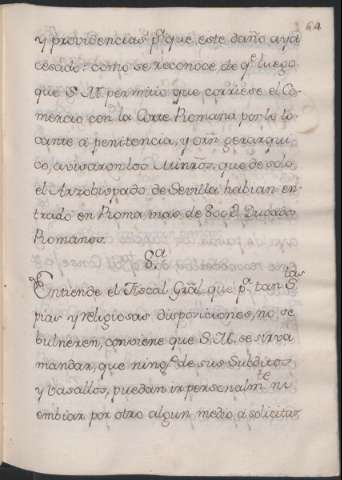 64
y providencias pª que, este daño aya
cesado: como se reconoce, de qᵉ luego
que S. M. permitio que corriese el Co-
mercio con la Corte Romana por lo to-
cante a penitencia, y orñ gerarqui-
co, avisaron los Minros, que de solo
el Arzobispado de Sevilla habian en-
trado en Roma mas de 800 Ducados
Romanos.
8.ª
Entiende el Fiscal Gral que pª tan Stas
pias y religiosas disposiciones, no se
bulneren, conviene que S. M. se sirva
mandar, que ningº de sus Subditos
y basallos, puedan ir personalmte ni
embiar por otro algun medio á solicitar